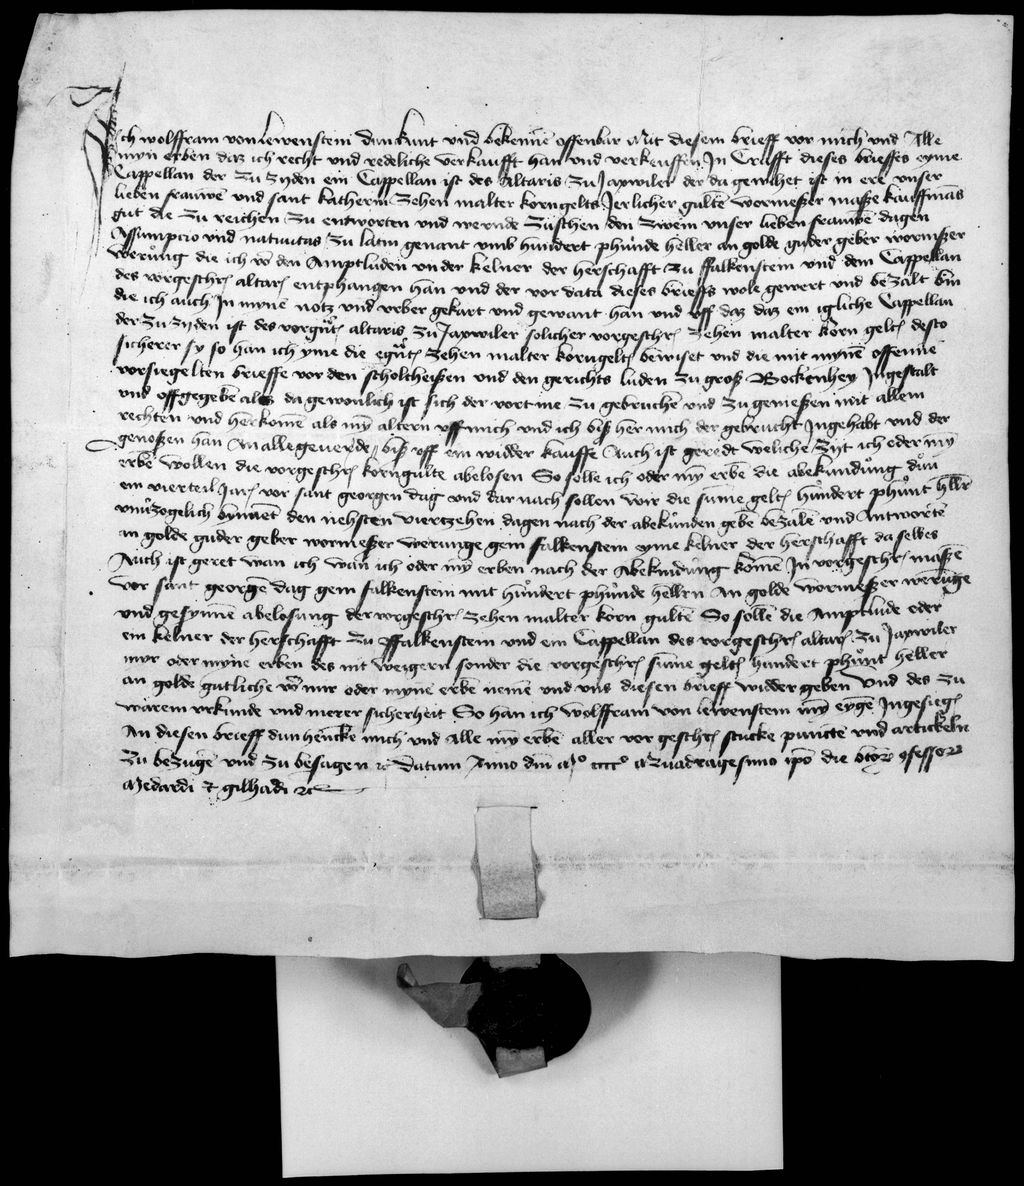 Ich wolffram von lewenstein dun kunt vnd bekenne offenbar Mit diesem brieff vor mich vnd Alle
myn erben daz ich recht vnd redeliche verkaufft han vnd verkeuffen In Crafft dieses brieffes eyme
Cappellan der zu zyden ein Cappellan ist des Altaris zu Jaxwiler der da gewihet ist in ere vnser
lieben frauwē vnd sant katherin zehen malter korngelts Jerlicher gulte wormeßer maße kauffmās
gut die zu reichen zu entworten vnd wernde zuschen den zwein vnser lieben frauwē dagen
Assumpcio vnd natiuitas zu latin genant vmb hundert phunde heller an golde guder geber wormßer
werung die ich vō den Amptluden vnder kelner der herschafft zu ffalkenstein vnd dem Cappellan
des vorgeschrȝ altarȝ entphangen han vnd der vor data dieses brieffs wole gewert vnd bezalt bin
die ich auch In mynē notz vnd vrber gekart vnd gewant han vnd vff daz daz ein igliche Cappellan
der zu zyden ist des vorgnȝ altaris zu Jaxwiler solicher vorgeschrȝ zehen malter korn geltȝ desto
sicherer sy so han ich yme die egnȝ zehen malter korngeltȝ bewiset vnd die mit mynē offenne
versiegelten brieffe vor den scholtheißen vnd den gerichts luden zu groß Bockenhey Ingestalt
vnd vffgegebē als da gewonlich ist sich der vort me zu gebruchē vnd zu genießen mit allem
rechten vnd herkomē als mȳ altern vff mich vnd ich biß her mich der gebrucht Ingehabt vnd der
genoßen han An alle geuerde biß vff ein widder kauffe Auch ist geredt weliche zyt ich oder mȳ
erbē wollen die vorgeschrȝ korngulte abelosen So solle ich oder mȳ erbē die abekundūg dūn
ein vierteil Jarȝ vor sant georgen dag vnd dar nach sollen wir die sūme geltȝ hundert phūnt hllr
vnuerzogelich bynnēt den nehsten viertzehen dagen nach der abekunden gebē bezalē vnd Antwortē
an golde guder geber wormeßer werunge gein falkenstein eyme kelner der herschafft da selbes
Auch ist geret wan ich wan ich oder mȳ erben nach der Abekundung komē In vorgeschrȝ maßē
vor sant georgē dag gein falkenstein mit hundert phunde hellrn An golde wormeßer werūge
vnd gesynnēn abelosung der vorgeschrȝ zehen malter korn gultē So sollē die Amptlude oder
ein kelner der herschafft zu ffalkenstein vnd ein Cappellan des vorgeschrȝ altarȝ zu Jaxwiler
mir oder myne erben des nit weigern sonder die vorgeschrȝ sūme geltȝ hundert phūnt heller
an golde gutliche vō mir oder mynē erbē nemē vnd vns diesen brieff widder geben Vnd des zu
warem vrkunde vnd merer sicherheit So han ich wolffram von lewenstein mȳ eygē Ingesiegȝ
An diesen brieff dun hencke mich vnd Alle mȳ erbē aller vor geschrȝ stucke punctē vnd artickeln
zu bezugē vnd zu besagen ꝛc Datum Anno dm̄ mº ccccº quadragesimo ip̄o die
Medardi ⁊ gilhadi ꝛc